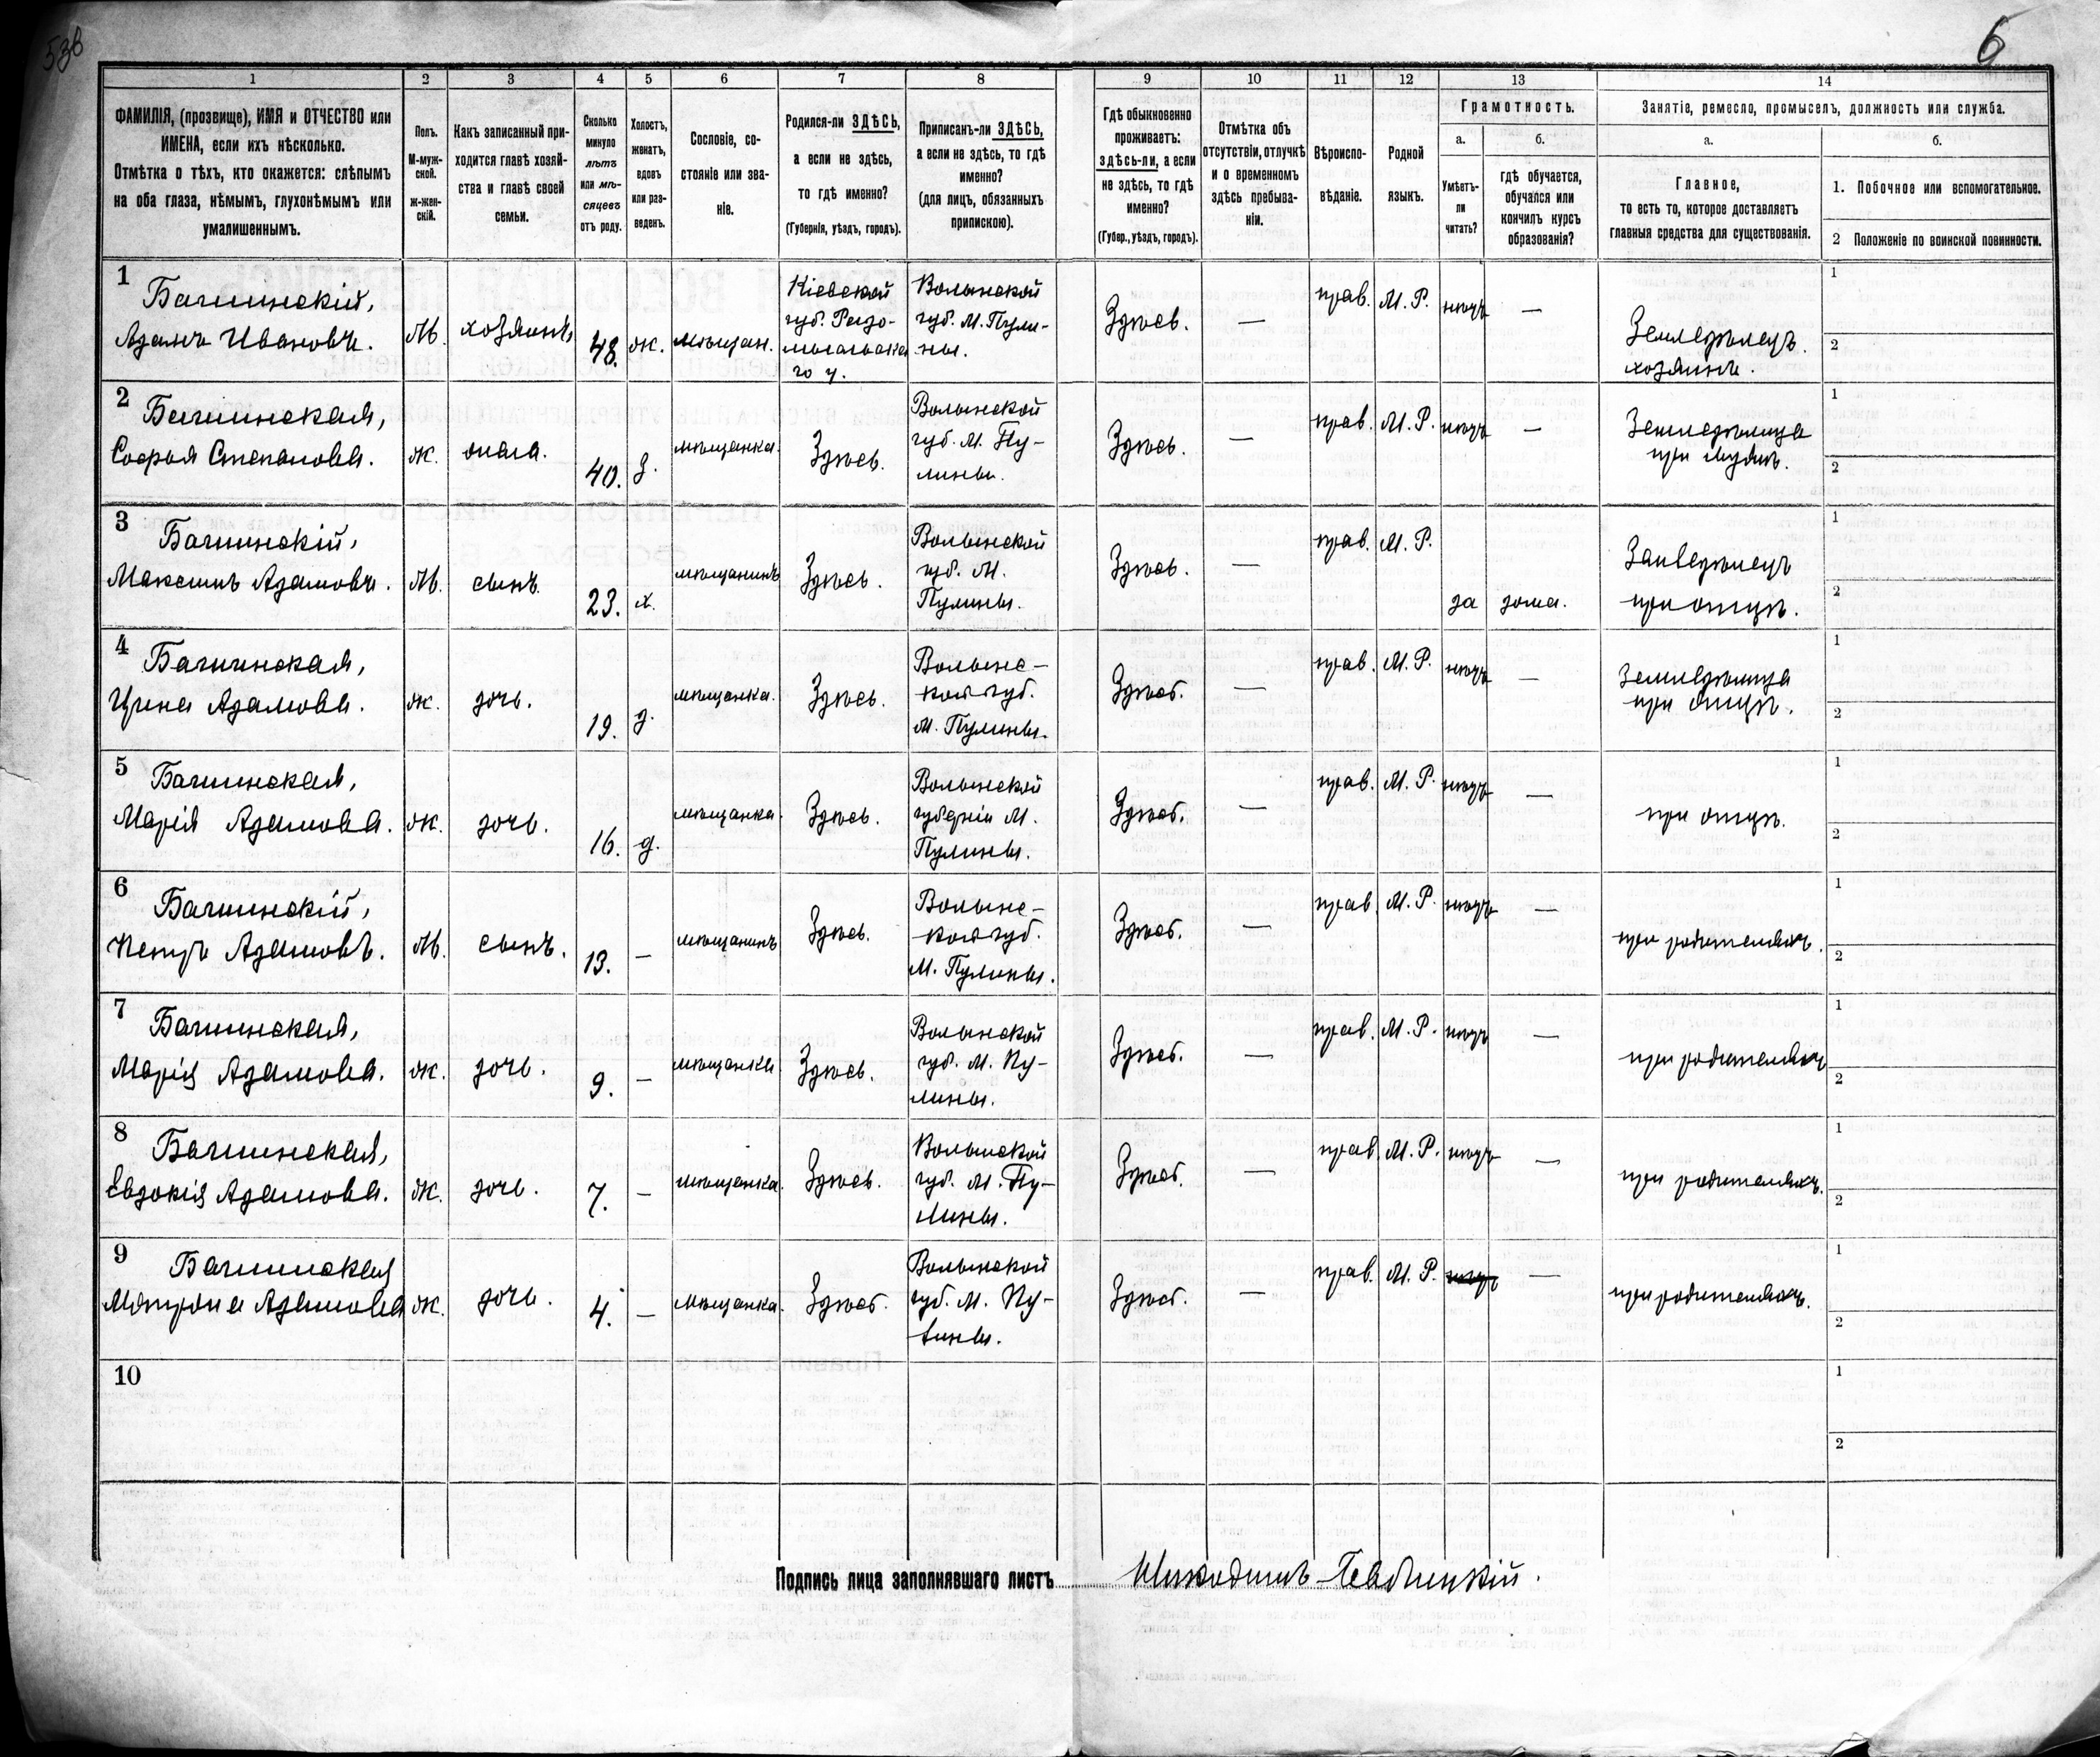 538
6
1 2 3 4 5 6 7 8 9 10 11 12 13 14
ФАМИЛІЯ, (прозвище), ИМЯ и ОТЧЕСТВО или
ИМЕНА, если ихъ нѣсколько.
Отмѣтка о тѣхъ, кто окажется: слѣпымъ
на оба глаза, нѣмымъ, глухонѣмымъ или
умалишеннымъ.
Полъ.
М-муж-
ской.
ж-жен-
скій.
Какъ записанный при-
ходится главѣ хозяй-
ства и главѣ своей
семьи.
Сколько
минуло
лѣтъ
или мѣ-
сяцевъ
отъ роду.
Холостъ,
женатъ,
вдовъ
или раз-
веденъ.
Сословіе, со-
стояніе или зва-
ніе.
Родился-ли ЗДѢСЬ,
а если не здѣсь,
то гдѣ именно?
(Губернія, уѣздъ, городъ).
Приписанъ-ли ЗДѢСЬ,
а если не здѣсь, то гдѣ
именно?
(для лицъ, обязанныхъ
припискою).
Гдѣ обыкновенно
проживаетъ:
здѣсь-ли, а если
не здѣсь, то гдѣ
именно?
(Губер., уѣздъ, городъ).
Отмѣтка объ
отсутствіи, отлучкѣ
и о временномъ
здѣсь пребыва-
ніи.
Вѣроиспо-
вѣданіе.
Родной
языкъ.
Грамотность.
а.
Умѣетъ-
ли
читать?
б.
гдѣ обучается,
обучался или
кончилъ курсъ
образованія?
Занятіе, ремесло, промыселъ, должность или служба.
а.
Главное,
то есть то, которое доставляетъ
главныя средства для существованія.
б.
1. Побочное или вспомогательное.
2 Положеніе по воинской повинности.
1
Бачинскій,
Адамъ Ивановъ.
М.
хозяинъ
48.
ж.
мѣщан.
Кіевской
губ. Радо-
го у.
Волынской
губ. М. Пули-
ны.
Здѣсь.
—
прав.
М. Р.
нѣтъ
—
Земледѣлецъ.
хозяинъ.
1
2
2
Бачинская,
Софья Степанова.
ж.
жена.
40.
з.
мѣщанка.
Здѣсь.
Волынской
губ. М. Пу-
лины.
Здѣсь.
—
прав.
М. Р.
нѣтъ
—
Земледѣлица
при мужѣ.
1
2
3
Бачинскій,
Максимъ Адамовъ.
М.
сынъ.
23.
х.
мѣщанинъ
Здѣсь.
Волынской
губ. М.
Пулины.
Здѣсь.
—
прав.
М. Р.
да
дома.
Земледѣлецъ
при отцѣ.
1
2
4
Бачинская,
Ирина Адамова.
ж.
дочь.
19.
д.
мѣщанка.
Здѣсь.
Волынс-
кой губ.
М. Пулины.
Здѣсь.
—
прав.
М. Р.
нѣтъ
—
Земледѣлица
при отцѣ.
1
2
5
Бачинская,
Марія Адамова.
ж.
дочь.
16.
д.
мѣщанка.
Здѣсь.
Волынской
губерніи М.
Пулины.
Здѣсь.
—
прав.
М. Р.
нѣтъ
—
при отцѣ.
1
2
6
Бачинскій,
Петръ Адамовъ.
М.
сынъ.
13.
—
мѣщанинъ
Здѣсь.
Волынс-
кой губ.
М. Пулины.
Здѣсь.
—
прав.
М. Р.
нѣтъ
—
при родителяхъ.
1
2
7
Бачинская,
Марія Адамова.
ж.
дочь.
9.
—
мѣщанка
Здѣсь.
Волынской
губ. М. Пу-
лины.
Здѣсь.
—
прав.
М. Р.
нѣтъ
—
при родителяхъ
1
2
8
Бачинская,
Евдокія Адамова.
ж.
дочь.
7.
—
мѣщанка.
Здѣсь.
Волынской
губ. М. Пу-
лины.
Здѣсь.
—
прав.
М. Р.
нѣтъ
—
при родителяхъ.
1
2
9
Бачинская
Матрона Адамова
ж.
дочь.
4.
—
мѣщанка.
Здѣсь.
Волынской
губ. М. Пу-
лины.
Здѣсь.
—
прав.
М. Р.
нѣтъ
—
при родителяхъ.
1
2
10
1
2
Подпись лица заполнявшаго листъ
Никодимъ